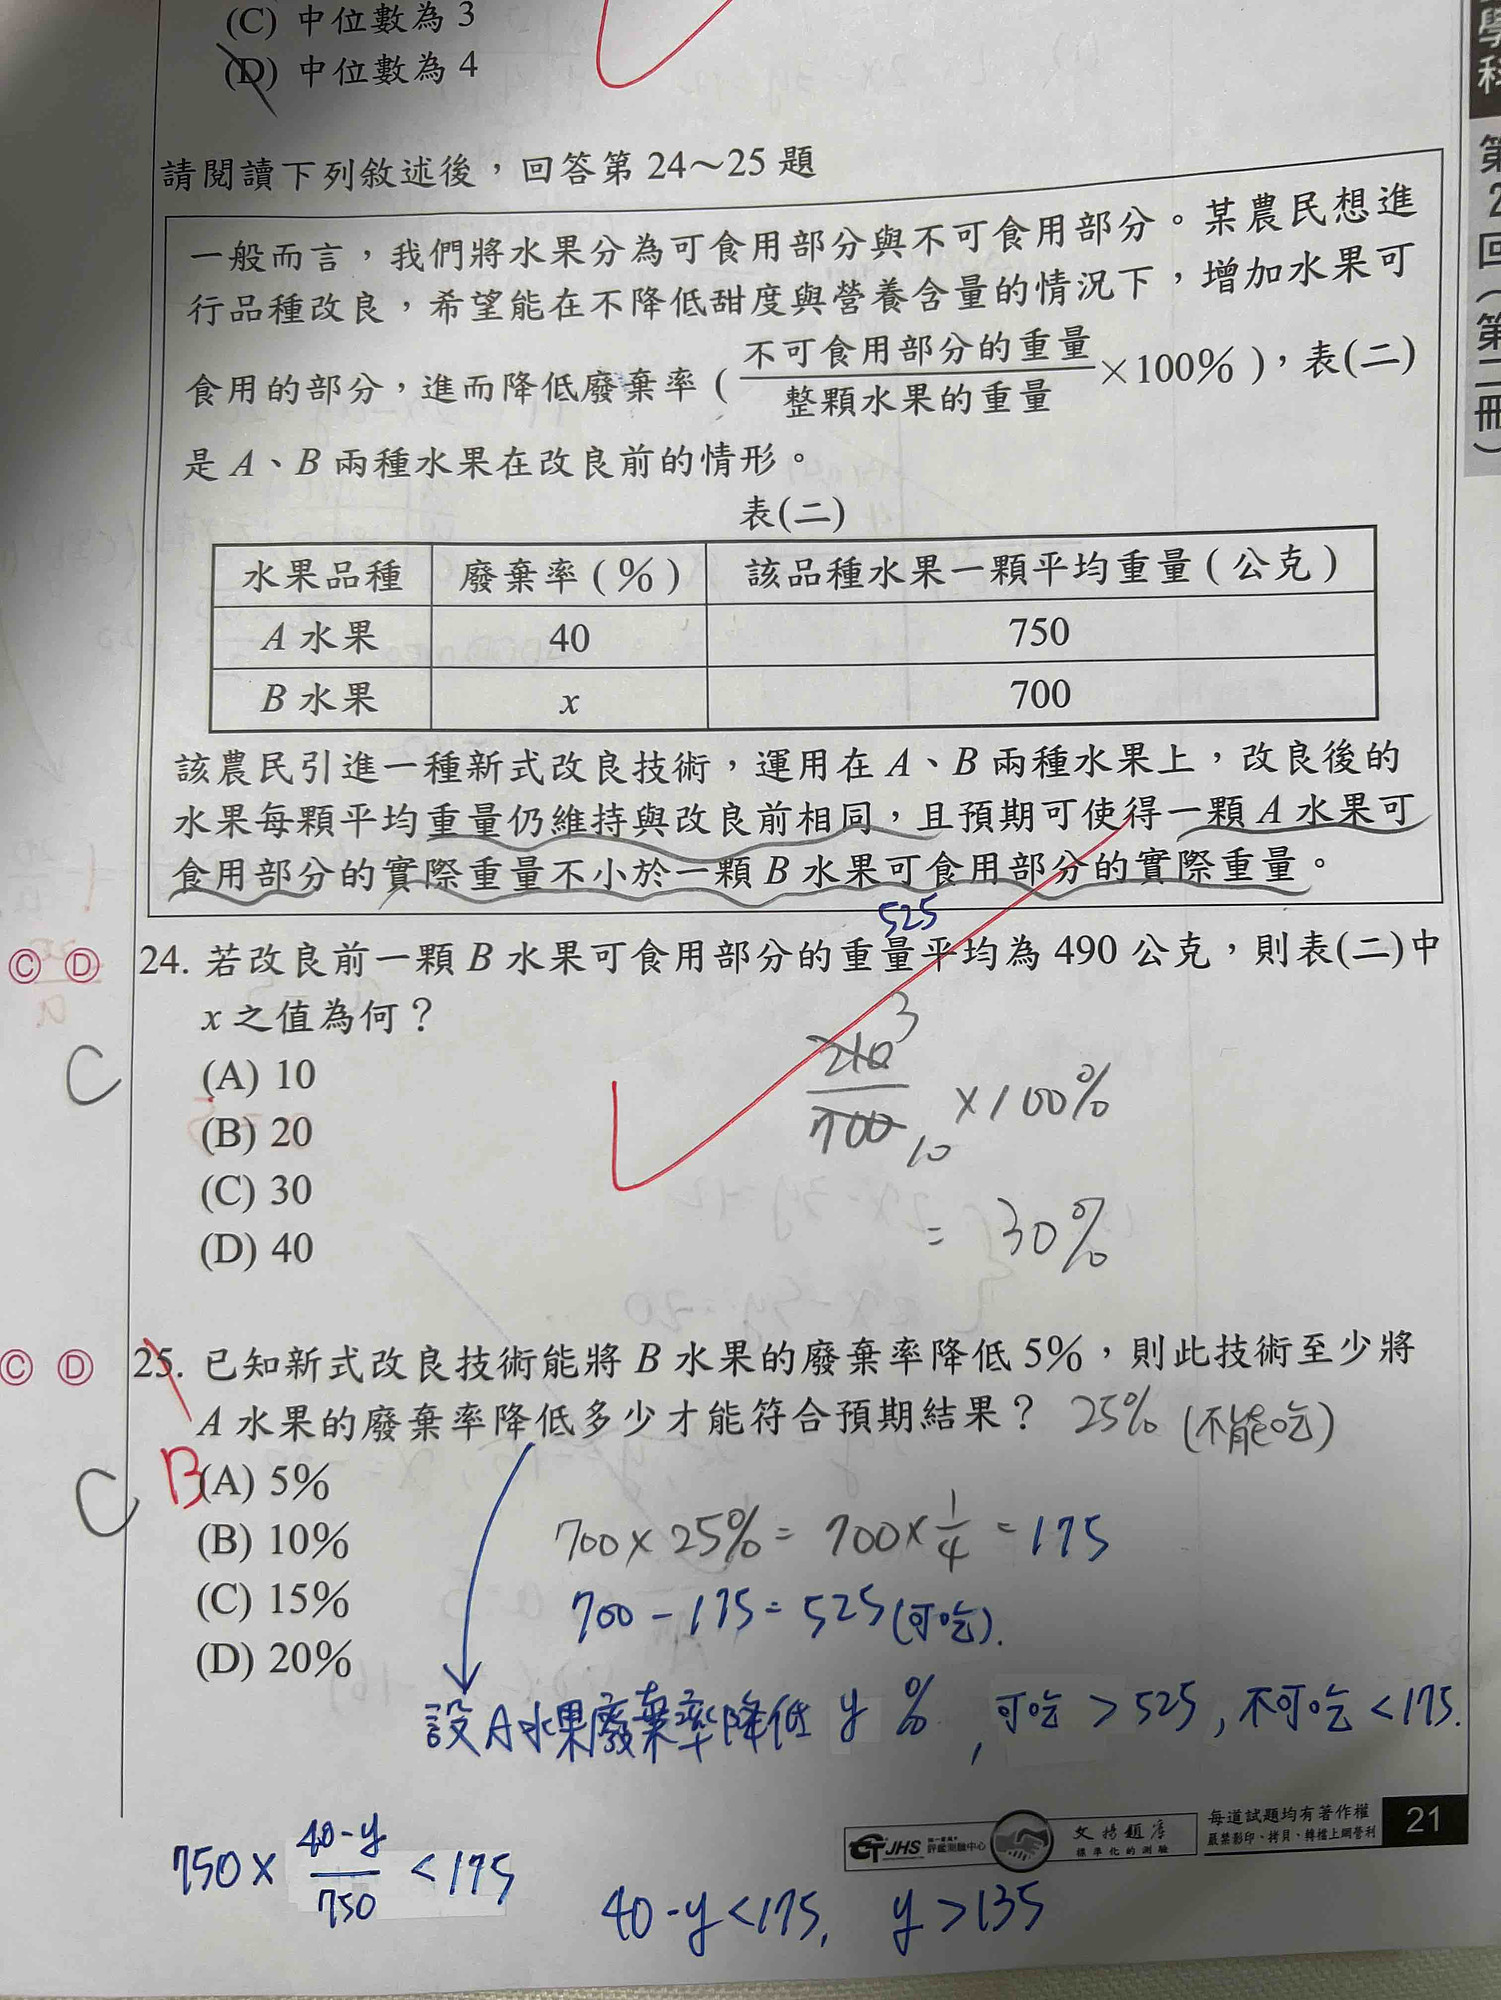 (C) 中位數為 3
(D) 中位數為 4
學科
第2回(第二冊)
請閱讀下列敘述後，回答第 24～25 題
一般而言，我們將水果分為可食用部分與不可食用部分。某農民想進
行品種改良，希望能在不降低甜度與營養含量的情況下，增加水果可
食用的部分，進而降低廢棄率 ( 不可食用部分的重量/整顆水果的重量 ×100% )，表(二)
是 A、B 兩種水果在改良前的情形。
表(二)
水果品種 廢棄率 ( % ) 該品種水果一顆平均重量 ( 公克 )
A 水果 40 750
B 水果 x 700
該農民引進一種新式改良技術，運用在 A、B 兩種水果上，改良後的
水果每顆平均重量仍維持與改良前相同，且預期可使得一顆 A 水果可
食用部分的實際重量不小於一顆 B 水果可食用部分的實際重量。
525
Ⓒ Ⓓ 24. 若改良前一顆 B 水果可食用部分的重量平均為 490 公克，則表(二)中
x 之值為何？
C
(A) 10
(B) 20
(C) 30
(D) 40
210 3
700 10 ×100%
= 30%
Ⓒ Ⓓ 25. 已知新式改良技術能將 B 水果的廢棄率降低 5%，則此技術至少將
A 水果的廢棄率降低多少才能符合預期結果？ 25% (不能吃)
C B
(A) 5%
(B) 10%
(C) 15%
(D) 20%
700×25% = 700×1/4 = 175
700-175=525(可吃).
設A水果廢棄率降低 y %, 可吃>525, 不可吃<175.
750× 40-y/750 <175
40-y<175, y>135
JHS 評鑑測驗中心
文揚題庫
標準化的測驗
每道試題均有著作權
嚴禁影印、拷貝、轉檔上網營利
21